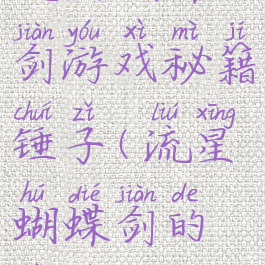 jiàn yóu xì mì jí
剑游戏秘籍
chuí zǐ liú xīng
锤子(流星
hú dié jiàn de
蝴蝶剑的